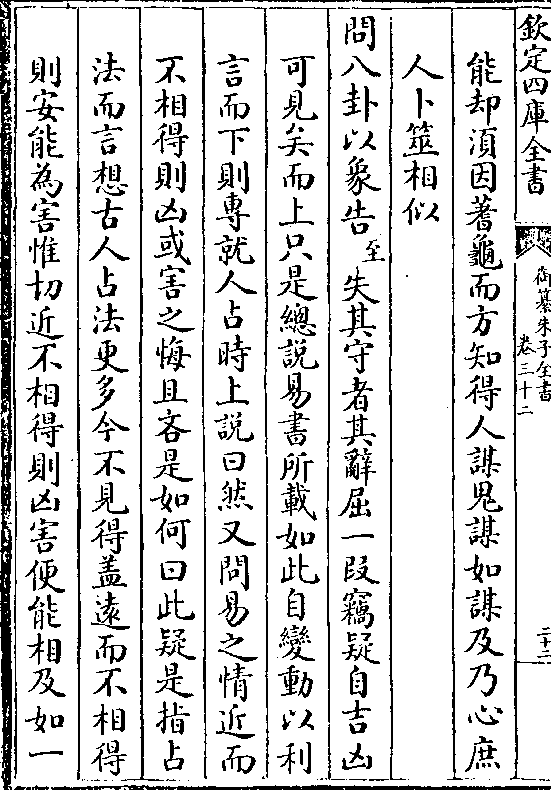 欽定四庫全書
御纂朱子全書
卷三十二
三十二
能却湏因蓍龜而方知得人謀鬼謀如謀及乃心庶
人卜筮相似
問八卦以象告至失其守者其辭屈一段竊疑自吉凶
可見矣而上只是總説易書所載如此自變動以利
言而下則專就人占時上説曰然又問易之情近而
不相得則凶或害之悔且吝是如何曰此疑是指占
法而言想古人占法更多今不見得盖遠而不相得
則安能為害惟切近不相得則凶害便能相及如一